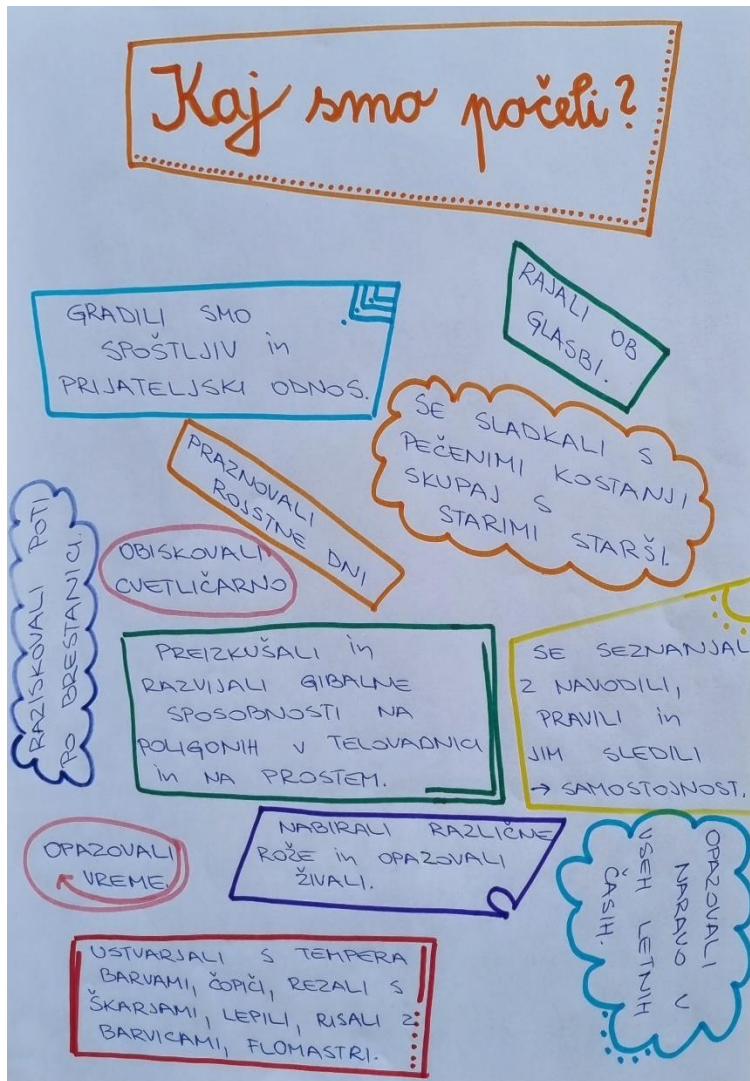 Kaj smo počeli?
GRADILI SMO
SPOŠTLJIV in
PRIJATELJSKI ODNOS.
RAJALI OB
GLASBI.
SE SLADKALI S
PEČENIMI KOSTANJI
SKUPAJ S
STARIMI STARŠI.
PRAZNOVALI
ROJSTNE DNI
OBISKOVALI
CVETLIČARNO
RAZISKOVALI POTI
PO BRESTANICI.
PREIZKUŠALI in
RAZVIJALI GIBALNE
SPOSOBNOSTI NA
POLIGONIH V TELOVADNICI
in NA PROSTEM.
SE SEZNANJAL
Z NAVODILI,
PRAVILI in
JIM SLEDILI
→ SAMOSTOJNOST.
OPAZOVALI
VREME.
NABIRALI RAZLIČNE
ROŽE in OPAZOVALI
ŽIVALI.
OPAZOVALI
NARAVO V
VSEH LETNIH
ČASIH.
USTVARJALI S TEMPERA
BARVAMI, ČOPIČI, REZALI S
ŠKARJAMI, LEPILI, RISALI Z
BARVICAMI, FLOMASTRI.